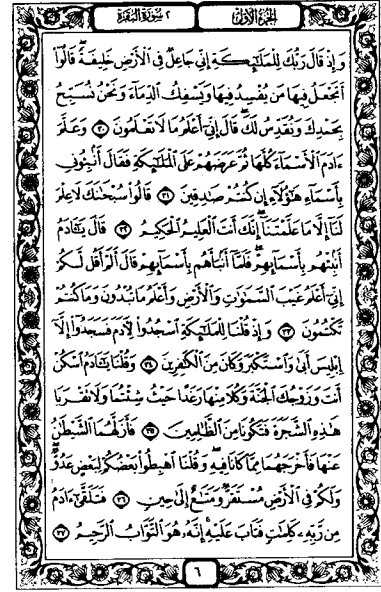 الجزء الأول
٢ سورة البقرة
وَإِذْ قَالَ رَبُّكَ لِلْمَلَٰٓئِكَةِ إِنِّى جَاعِلٌ فِى ٱلْأَرْضِ خَلِيفَةً ۖ قَالُوٓا۟
أَتَجْعَلُ فِيهَا مَن يُفْسِدُ فِيهَا وَيَسْفِكُ ٱلدِّمَآءَ وَنَحْنُ نُسَبِّحُ
بِحَمْدِكَ وَنُقَدِّسُ لَكَ ۖ قَالَ إِنِّىٓ أَعْلَمُ مَا لَا تَعْلَمُونَ ٣٠ وَعَلَّمَ
ءَادَمَ ٱلْأَسْمَآءَ كُلَّهَا ثُمَّ عَرَضَهُمْ عَلَى ٱلْمَلَٰٓئِكَةِ فَقَالَ أَنۢبِـُٔونِى
بِأَسْمَآءِ هَٰٓؤُلَآءِ إِن كُنتُمْ صَٰدِقِينَ ٣١ قَالُوا۟ سُبْحَٰنَكَ لَا عِلْمَ
لَنَآ إِلَّا مَا عَلَّمْتَنَآ ۖ إِنَّكَ أَنتَ ٱلْعَلِيمُ ٱلْحَكِيمُ ٣٢ قَالَ يَٰٓـَٔادَمُ
أَنۢبِئْهُم بِأَسْمَآئِهِمْ ۖ فَلَمَّآ أَنۢبَأَهُم بِأَسْمَآئِهِمْ قَالَ أَلَمْ أَقُل لَّكُمْ
إِنِّىٓ أَعْلَمُ غَيْبَ ٱلسَّمَٰوَٰتِ وَٱلْأَرْضِ وَأَعْلَمُ مَا تُبْدُونَ وَمَا كُنتُمْ
تَكْتُمُونَ ٣٣ وَإِذْ قُلْنَا لِلْمَلَٰٓئِكَةِ ٱسْجُدُوا۟ لِـَٔادَمَ فَسَجَدُوٓا۟ إِلَّآ
إِبْلِيسَ أَبَىٰ وَٱسْتَكْبَرَ وَكَانَ مِنَ ٱلْكَٰفِرِينَ ٣٤ وَقُلْنَا يَٰٓـَٔادَمُ ٱسْكُنْ
أَنتَ وَزَوْجُكَ ٱلْجَنَّةَ وَكُلَا مِنْهَا رَغَدًا حَيْثُ شِئْتُمَا وَلَا تَقْرَبَا
هَٰذِهِ ٱلشَّجَرَةَ فَتَكُونَا مِنَ ٱلظَّٰلِمِينَ ٣٥ فَأَزَلَّهُمَا ٱلشَّيْطَٰنُ
عَنْهَا فَأَخْرَجَهُمَا مِمَّا كَانَا فِيهِ ۖ وَقُلْنَا ٱهْبِطُوا۟ بَعْضُكُمْ لِبَعْضٍ عَدُوٌّ ۖ
وَلَكُمْ فِى ٱلْأَرْضِ مُسْتَقَرٌّ وَمَتَٰعٌ إِلَىٰ حِينٍ ٣٦ فَتَلَقَّىٰٓ ءَادَمُ
مِن رَّبِّهِۦ كَلِمَٰتٍ فَتَابَ عَلَيْهِ ۚ إِنَّهُۥ هُوَ ٱلتَّوَّابُ ٱلرَّحِيمُ ٣٧
٦